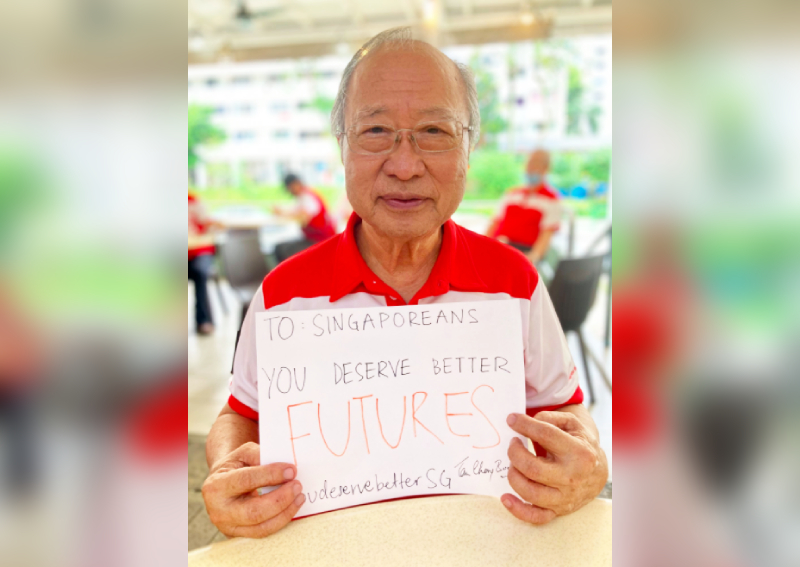 TO: SINGAPOREANS
YOU DESERVE BETTER
FUTURES
oudeservebetterSG Tan Cheng